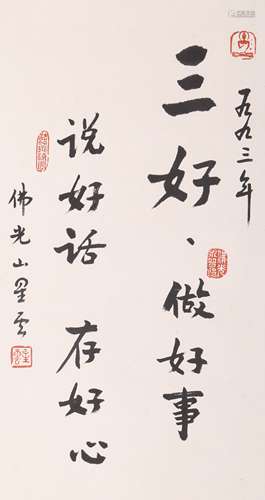 一九九三年
三好、做好事
说好话 存好心
佛光山星云